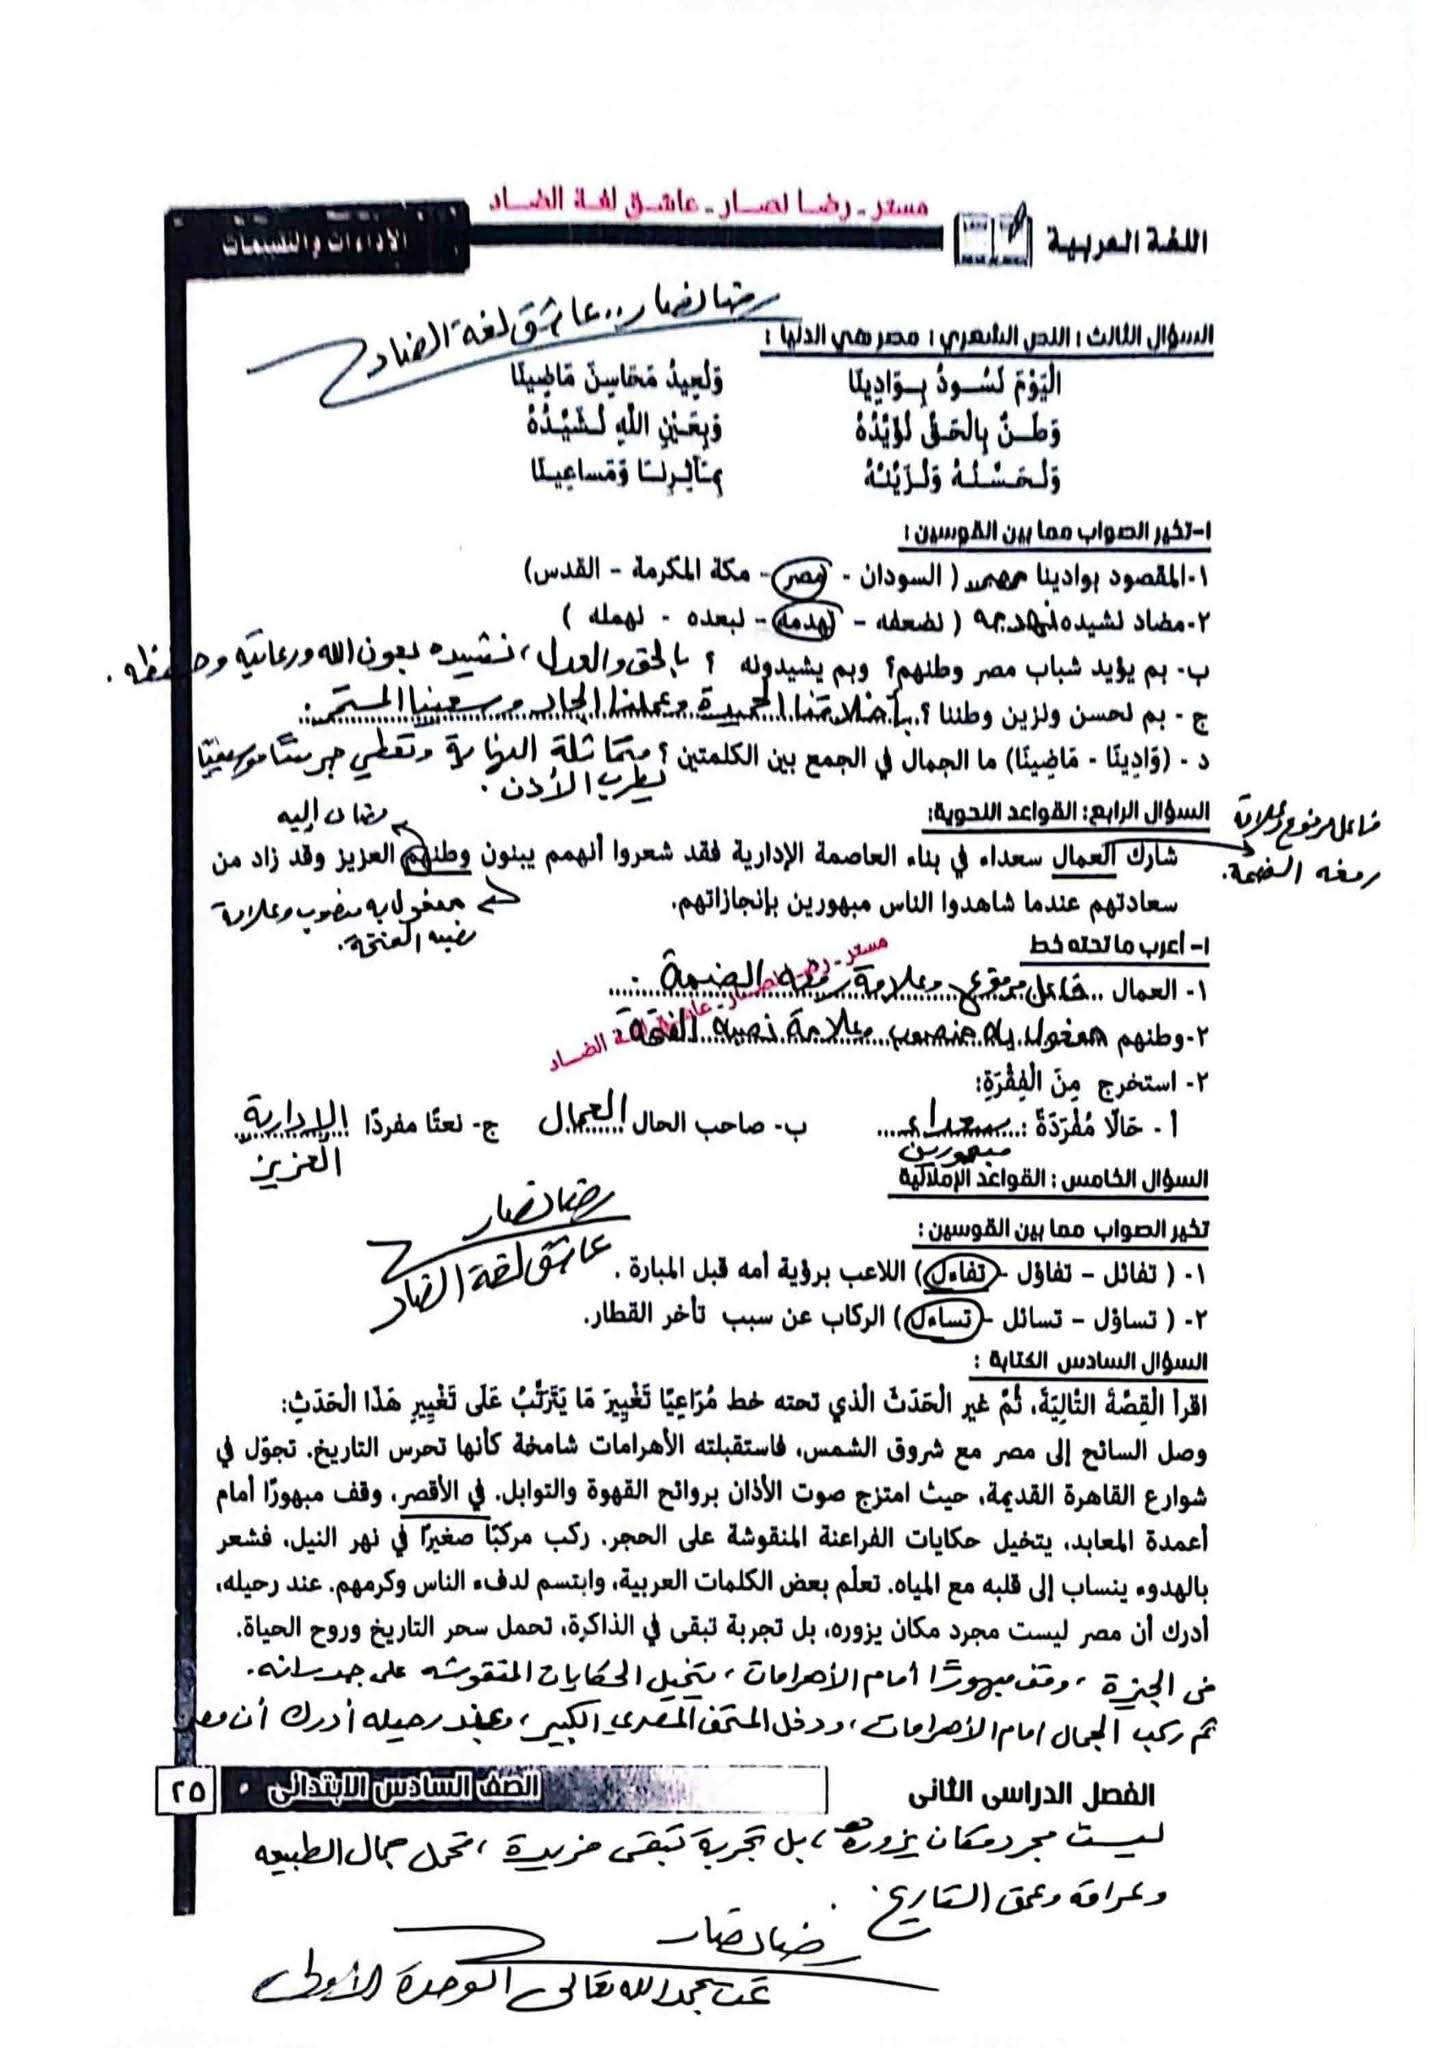 مستر - رضا نصار - عاشق لغة الضاد
اللغة العربية
الأداءات والتقييمات
رضا نصار .. عاشق لغة الضاد
السؤال الثالث : النص الشعري : مصر هي الدنيا :
الْيَوْمَ نَسُودُ بِوَادِينَا وَنُعِيدُ مَحَاسِنَ مَاضِينَا
وَطَنٌ بِالْحَقِّ نُؤَيِّدُهُ وَبِعَيْنِ اللهِ نُشَيِّدُهُ
وَنُحَسِّنُهُ وَنُزَيِّنُهُ بِمَآثِرِنَا وَمَسَاعِينَا
١- تخير الصواب مما بين القوسين :
١- المقصود بوادينا مصر ( السودان - مصر - مكة المكرمة - القدس)
٢- مضاد نشيده نهدمه ( نضعفه - نهدمه - نبعده - نهمله )
ب- بم يؤيد شباب مصر وطنهم؟ وبم يشيدونه ؟ بالحق والعدل ، نشيده بعون الله ورعايته وحفظه .
ج - بم نحسن ونزين وطننا ؟ بأخلاقنا الحميدة وعملنا الجاد وسعينا المستمر .
د - (وَادِينَا - مَاضِينَا) ما الجمال في الجمع بين الكلمتين ؟ متماثلة النهاية وتعطي جرسًا موسيقيًا
يطرب الأذن .
السؤال الرابع: القواعد النحوية:
مضاف إليه
فاعل مرفوع وعلامة
رفعه الضمة.
شارك العمال سعداء في بناء العاصمة الإدارية فقد شعروا أنهمم يبنون وطنهم العزيز وقد زاد من
سعادتهم عندما شاهدوا الناس مبهورين بإنجازاتهم.
مفعول به منصوب وعلامة
نصبه الفتحة.
١- أعرب ما تحته خط
مستر - رضا نصار - عاشق لغة الضاد
١- العمال فاعل مرفوع وعلامة رفعه الضمة .
٢- وطنهم مفعول به منصوب وعلامة نصبه الفتحة.
٢- استخرج مِنَ الْفِقْرَةِ:
أ - حَالًا مُفْرَدَةً : سعداء ب- صاحب الحال العمال ج- نعتًا مفردًا الإدارية
مبهورين العزيز
السؤال الخامس : القواعد الإملائية
رضا نصار
عاشق لغة الضاد
تخير الصواب مما بين القوسين :
١- ( تفائل - تفاؤل - تفاءل ) اللاعب برؤية أمه قبل المبارة .
٢- ( تساؤل - تسائل - تساءل ) الركاب عن سبب تأخر القطار.
السؤال السادس الكتابة :
اقرأ الْقِصَّةَ التَّالِيَةَ، ثُمَّ غير الْحَدَثَ الَّذي تحته خط مُرَاعِيًا تَغْيِيرَ مَا يَتَرَتَّبُ عَلَى تَغْيِيرِ هَذَا الْحَدَثِ:
وصل السائح إلى مصر مع شروق الشمس، فاستقبلته الأهرامات شامخة كأنها تحرس التاريخ. تجوّل في
شوارع القاهرة القديمة، حيث امتزج صوت الأذان بروائح القهوة والتوابل. في الأقصر، وقف مبهورًا أمام
أعمدة المعابد، يتخيل حكايات الفراعنة المنقوشة على الحجر. ركب مركبًا صغيرًا في نهر النيل، فشعر
بالهدوء ينساب إلى قلبه مع المياه. تعلّم بعض الكلمات العربية، وابتسم لدفء الناس وكرمهم. عند رحيله،
أدرك أن مصر ليست مجرد مكان يزوره، بل تجربة تبقى في الذاكرة، تحمل سحر التاريخ وروح الحياة.
في الجيزة ، وقف مبهورًا أمام الأهرامات ، يتخيل الحكايات المنقوشه على جدرانه.
ثم ركب الجمال امام الأهرامات ، ودخل المتحف المصرى الكبير ، وعند رحيله أدرك أن مصر
الفصل الدراسى الثانى
الصف السادس الابتدائى
٢٥
ليست مجرد مكان يزوره ، بل تجربة تبقى فريدة ، تحمل جمال الطبيعه
وعراقة وعمق التاريخ .
رضا نصار
تمت بحمد الله تعالى الوحدة الأولى